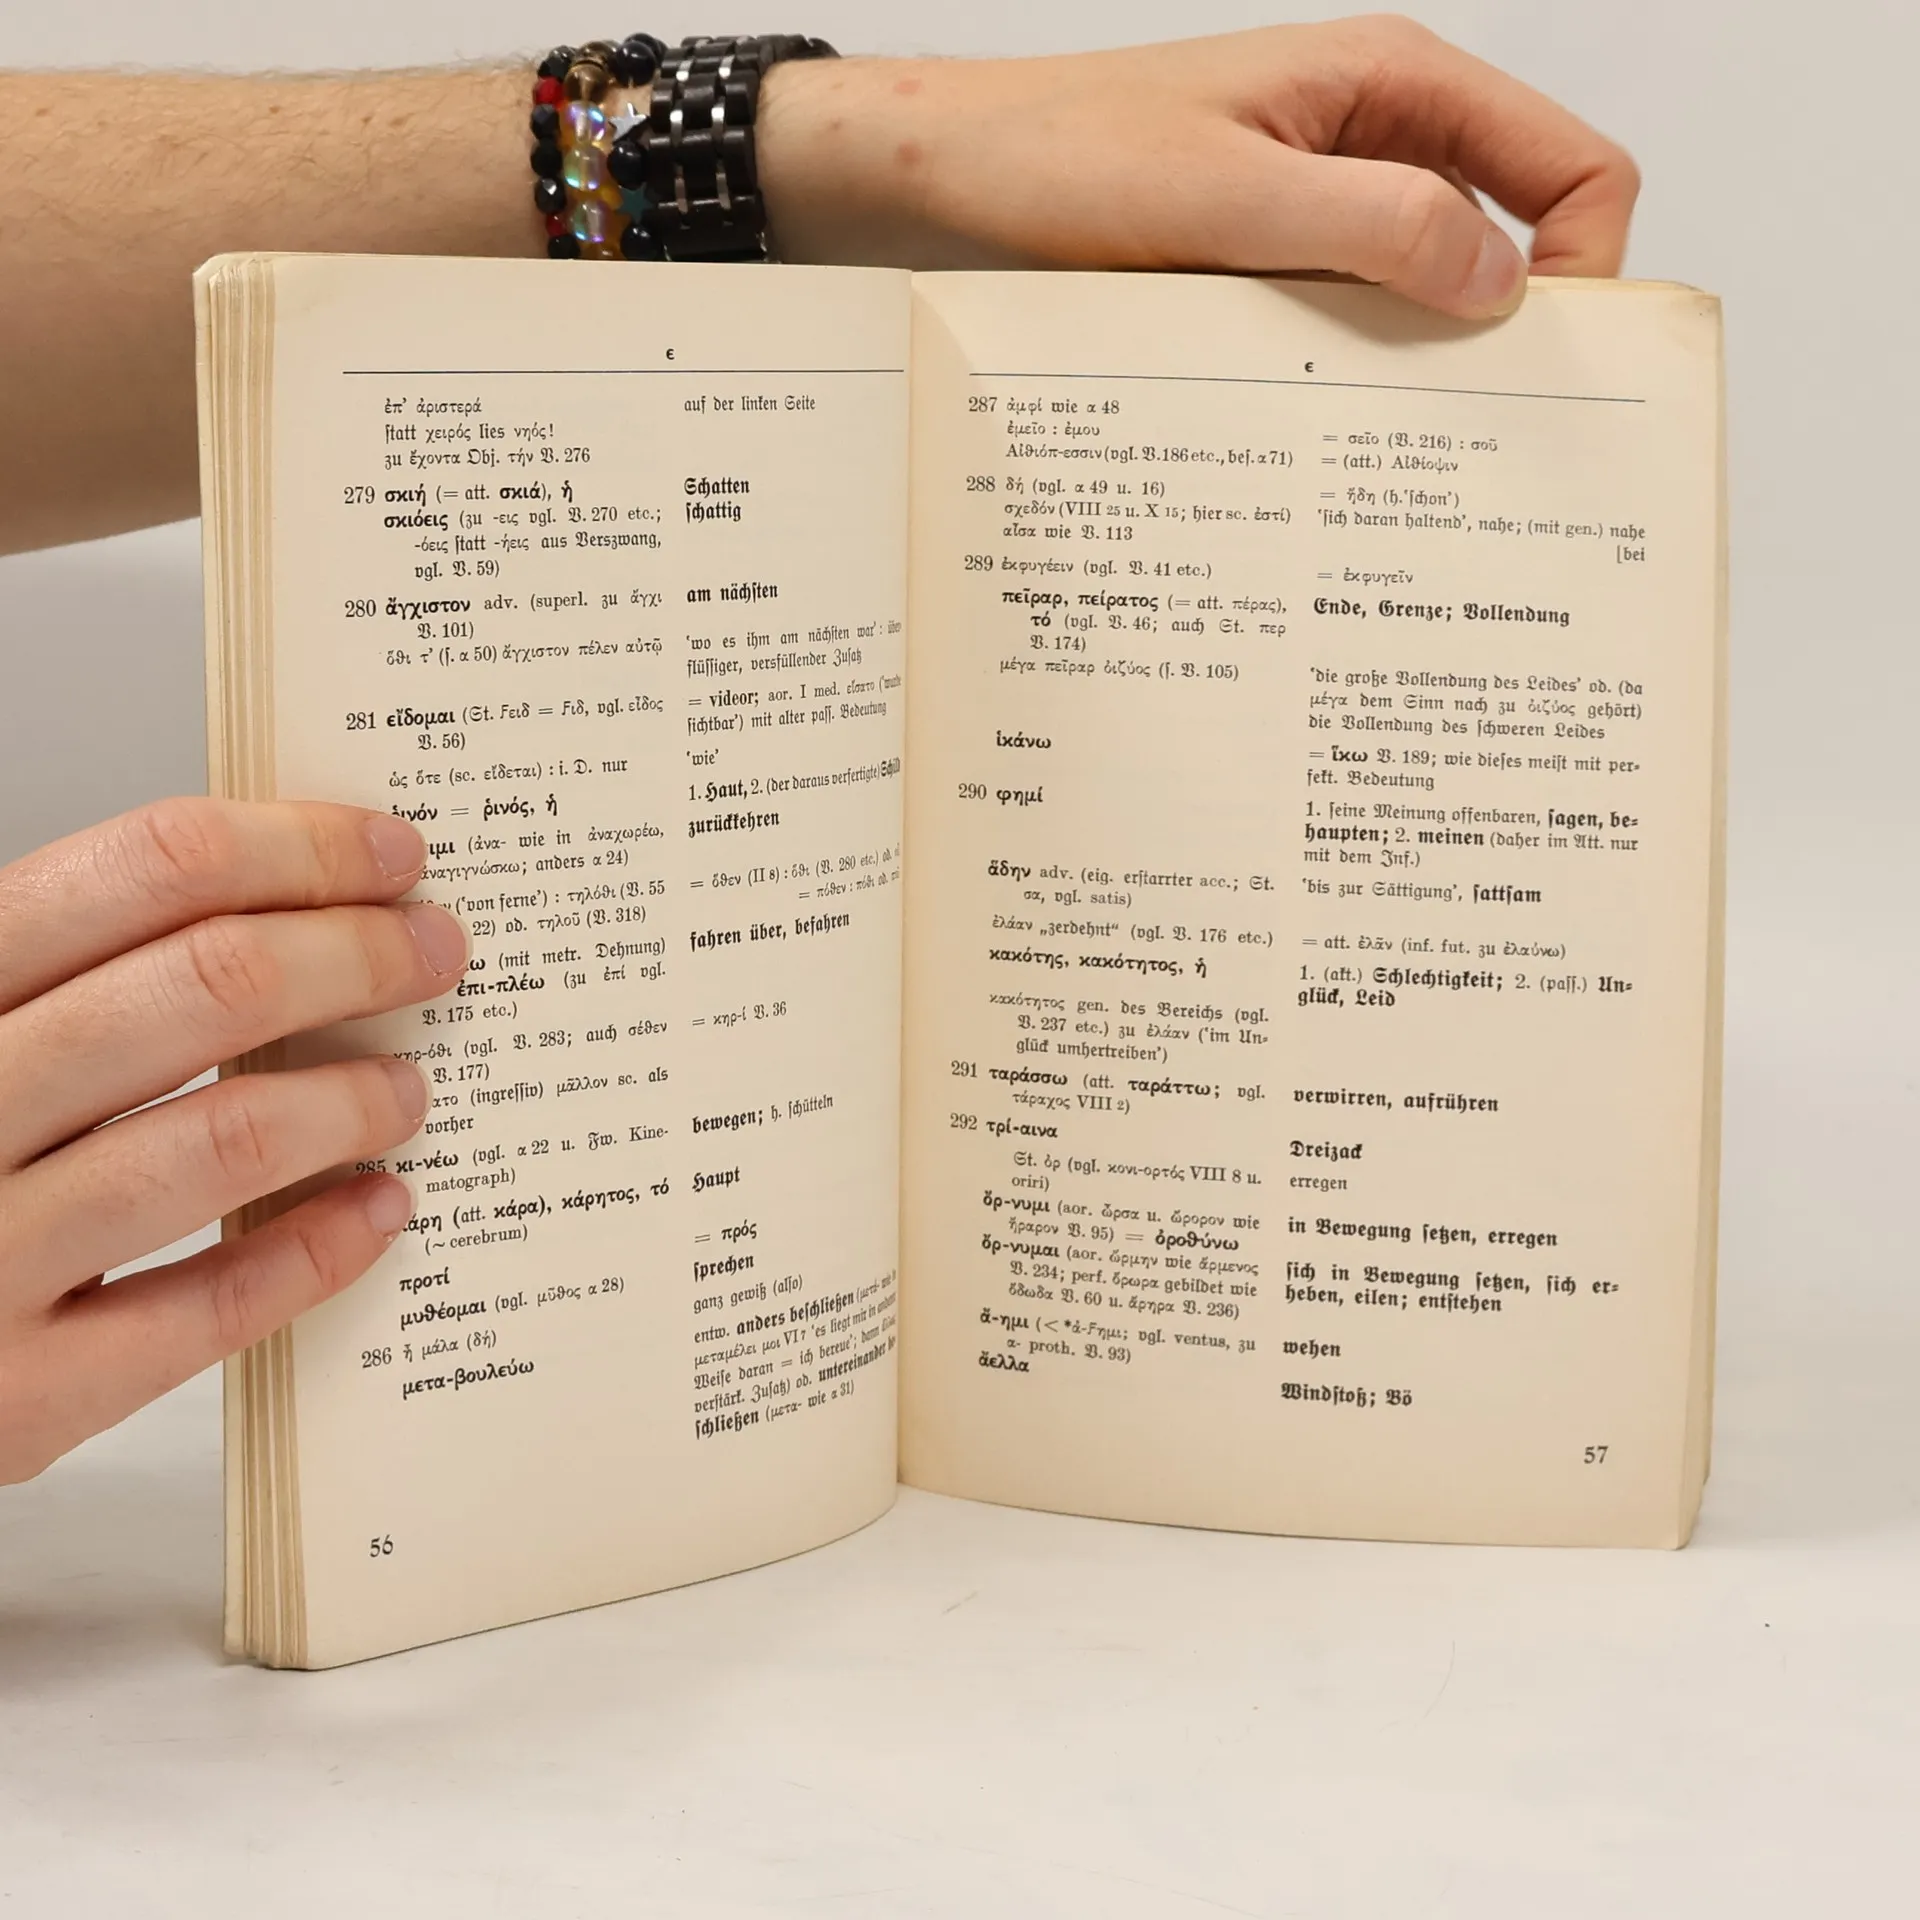 ε
ἐπ' ἀριστερά
auf der linken Seite
statt χειρός lies νηός!
zu ἔχοντα Obj. τήν V. 276
279 σκιή (= att. σκιά), ἡ
Schatten
σκιόεις (zu -εις vgl. V. 270 etc.;
schattig
-όεις statt -ήεις aus Verszwang,
vgl. V. 59)
280 ἄγχιστον adv. (superl. zu ἄγχι
am nächsten
V. 101)
ὅθι τ' (s. α 50) ἄγχιστον πέλεν αὐτῷ
'wo es ihm am nächsten war': über
flüssiger, versfüllender Zusatz
281 εἴδομαι (St. Ϝειδ = Ϝιδ, vgl. εἶδος
= videor; aor. I med. εἴσατο ('wurde
V. 56)
sichtbar') mit alter pass. Bedeutung
ὡς ὅτε (sc. εἴδεται) : i. D. nur
'wie'
ῥινόν = ῥινός, ἡ
1. Haut, 2. (der daraus verfertigte) Schild
ιμι (ἀνα- wie in ἀναχωρέω,
zurückkehren
ἀναγιγνώσκω; anders α 24)
('von ferne') : τηλόθι (V. 55
= ὅθεν (II 8) : ὅθι (V. 280 etc.) od.
22) od. τηλοῦ (V. 318)
= πόθεν : πόθι od.
ω (mit metr. Dehnung)
fahren über, befahren
ἐπι-πλέω (zu ἐπί vgl.
V. 175 etc.)
κηρ-όθι (vgl. V. 283; auch σέθεν
= κηρ-ί V. 36
V. 177)
ατο (ingressiv) μᾶλλον sc. als
vorher
285 κι-νέω (vgl. α 22 u. Fw. Kine-
bewegen; h. schütteln
matograph)
κάρη (att. κάρα), κάρητος, τό
Haupt
(~ cerebrum)
προτί
= πρός
μυθέομαι (vgl. μῦθος α 28)
sprechen
286 ἦ μάλα (δή)
ganz gewiß (also)
μετα-βουλεύω
entw. anders beschließen (μετά- wie in
μεταμέλει μοι VI 7 'es liegt mit in anderer
Weise daran = ich bereue'; dann
verstärk. Zusatz) od. untereinander be
schließen (μετα- wie α 31)
56
ε
287 ἀμφί wie α 48
ἐμεῖο : ἐμου
= σεῖο (V. 216) : σοῦ
Αἰθιόπ-εσσιν (vgl. V. 186 etc., bes. α 71)
= (att.) Αἰθίοψιν
288 δή (vgl. α 49 u. 16)
= ἤδη (h. 'schon')
σχεδόν (VIII 25 u. X 15; hier sc. ἐστί)
'sich daran haltend', nahe; (mit gen.) nahe
[bei
αἶσα wie V. 113
289 ἐκφυγέειν (vgl. V. 41 etc.)
= ἐκφυγεῖν
πεῖραρ, πείρατος (= att. πέρας),
Ende, Grenze; Vollendung
τό (vgl. V. 46; auch St. περ
V. 174)
μέγα πεῖραρ ὀιζύος (s. V. 105)
'die große Vollendung des Leides' od. (da
μέγα dem Sinn nach zu ὀιζύος gehört)
die Vollendung des schweren Leides
ἱκάνω
= ἵκω V. 189; wie dieses meist mit per-
fekt. Bedeutung
290 φημί
1. seine Meinung offenbaren, sagen, be-
haupten; 2. meinen (daher im Att. nur
mit dem Inf.)
ἄδην adv. (eig. erstarrter acc.; St.
'bis zur Sättigung', sattsam
σα, vgl. satis)
ἐλάαν „zerdehnt“ (vgl. V. 176 etc.)
= att. ἐλᾶν (inf. fut. zu ἐλαύνω)
κακότης, κακότητος, ἡ
1. (akt.) Schlechtigkeit; 2. (pass.) Un-
glück, Leid
κακότητος gen. des Bereichs (vgl.
V. 237 etc.) zu ἐλάαν ('im Un-
glück umhertreiben')
291 ταράσσω (att. ταράττω; vgl.
verwirren, aufrühren
τάραχος VIII 2)
292 τρί-αινα
Dreizack
St. ὀρ (vgl. κονι-ορτός VIII 8 u.
erregen
oriri)
ὄρ-νυμι (aor. ὦρσα u. ὤρορον wie
in Bewegung setzen, erregen
ἤραρον V. 95) = ὀροθύνω
ὄρ-νυμαι (aor. ὤρμην wie ἄρμενος
sich in Bewegung setzen, sich er-
V. 234; perf. ὄρωρα gebildet wie
heben, eilen; entstehen
ὄδωδα V. 60 u. ἄρηρα V. 236)
ἄ-ημι (< *ἀ-Ϝημι; vgl. ventus, zu
wehen
α- proth. V. 93)
ἄελλα
Windstoß; Bö
57